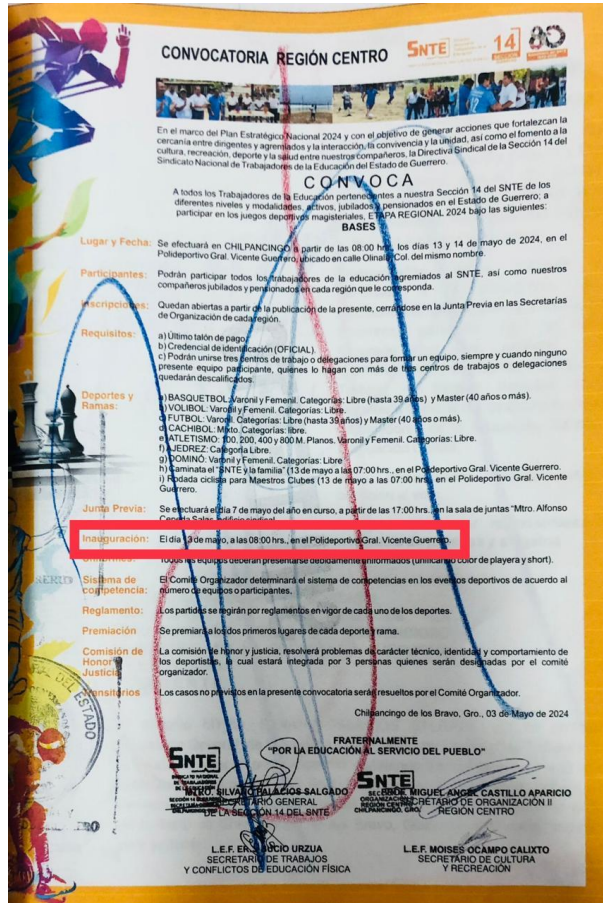 CONVOCATORIA REGIÓN CENTRO
SNTE
14
80
En el marco del Plan Estratégico Nacional 2024 y con el objetivo de generar acciones que fortalezcan la
cercania entre dirigentes y agremiados y la interacción, la convivencia y la unidad, así como el fomento a la
cultura, recreación, deporte y la salud entre nuestros compañeros, la Directiva Sindical de la Sección 14 del
Sindicato Nacional de Trabajadores de la Educación del Estado de Guerrero.
CONVOCA
A todos los Trabajadores de la Educación pertenecientes a nuestra Sección 14 del SNTE de los
diferentes niveles y modalidades, activos, jubilados y pensionados en el Estado de Guerrero; a
participar en los juegos deportivos magisteriales, ETAPA REGIONAL 2024 bajo las siguientes:
BASES
Lugar y Fecha: Se efectuará en CHILPANCINGO a partir de las 08:00 hrs., los días 13 y 14 de mayo de 2024, en el
Polideportivo Gral. Vicente Guerrero, ubicado en calle Olinalá, Col. del mismo nombre.
Participantes: Podrán participar todos los trabajadores de la educación agremiados al SNTE, así como nuestros
compañeros jubilados y pensionados en cada región que le corresponda.
Inscripciones: Quedan abiertas a partir de la publicación de la presente, cerrándose en la Junta Previa en las Secretarías
de Organización de cada región.
Requisitos: a) Último talón de pago.
b) Credencial de identificación (OFICIAL).
c) Podrán unirse tres centros de trabajo o delegaciones para formar un equipo, siempre y cuando ninguno
presente equipo participante, quienes lo hagan con más de tres centros de trabajo o delegaciones
quedarán descalificados.
Deportes y Ramas: a) BASQUETBOL: Varonil y Femenil. Categorías: Libre (hasta 39 años) y Master (40 años o más).
b) VOLIBOL: Varonil y Femenil. Categorías: Libre.
c) FUTBOL: Varonil y Femenil. Categorías: Libre (hasta 39 años) y Master (40 años o más).
d) CACHIBOL: Mixto. Categorías: libre.
e) ATLETISMO: 100, 200, 400 y 800 M. Planos. Varonil y Femenil. Categorías: Libre.
f) AJEDREZ: Categoría Libre.
g) DOMINÓ: Varonil y Femenil. Categorías: Libre.
h) Caminata el "SNTE y la familia" (13 de mayo a las 07:00 hrs., en el Polideportivo Gral. Vicente Guerrero.
i) Rodada ciclista para Maestros Clubes (13 de mayo a las 07:00 hrs. en el Polideportivo Gral. Vicente
Guerrero.
Junta Previa: Se efectuará el día 7 de mayo del año en curso, a partir de las 17:00 hrs., en la sala de juntas "Mtro. Alfonso
Cepeda Salas, edificio sindical.
Inauguración: El día 13 de mayo, a las 08:00 hrs., en el Polideportivo Gral. Vicente Guerrero.
Todos los equipos deberán presentarse debidamente uniformados (unificar color de playera y short).
Sistema de competencia: El Comité Organizador determinará el sistema de competencias en los eventos deportivos de acuerdo al
número de equipos o participantes.
Reglamento: Los partidos se regirán por reglamentos en vigor de cada uno de los deportes.
Premiación Se premiará a los dos primeros lugares de cada deporte y rama.
Comisión de Honor y Justicia: La comisión de honor y justicia, resolverá problemas de carácter técnico, identidad y comportamiento de
los deportistas, la cual estará integrada por 3 personas quienes serán designadas por el comité
organizador.
Transitorios Los casos no previstos en la presente convocatoria serán resueltos por el Comité Organizador.
Chilpancingo de los Bravo, Gro., 03 de Mayo de 2024
FRATERNALMENTE
"POR LA EDUCACIÓN AL SERVICIO DEL PUEBLO"
SNTE
SNTE
MTRO. SILVANO PALACIOS SALGADO
SECRETARIO GENERAL
DE LA SECCIÓN 14 DEL SNTE
MIGUEL ANGEL CASTILLO APARICIO
SECRETARIO DE ORGANIZACIÓN II
REGIÓN CENTRO
L.E.F. LUCIO URZUA
SECRETARIO DE TRABAJOS
Y CONFLICTOS DE EDUCACIÓN FÍSICA
L.E.F. MOISES OCAMPO CALIXTO
SECRETARIO DE CULTURA
Y RECREACIÓN
DEL ESTADO